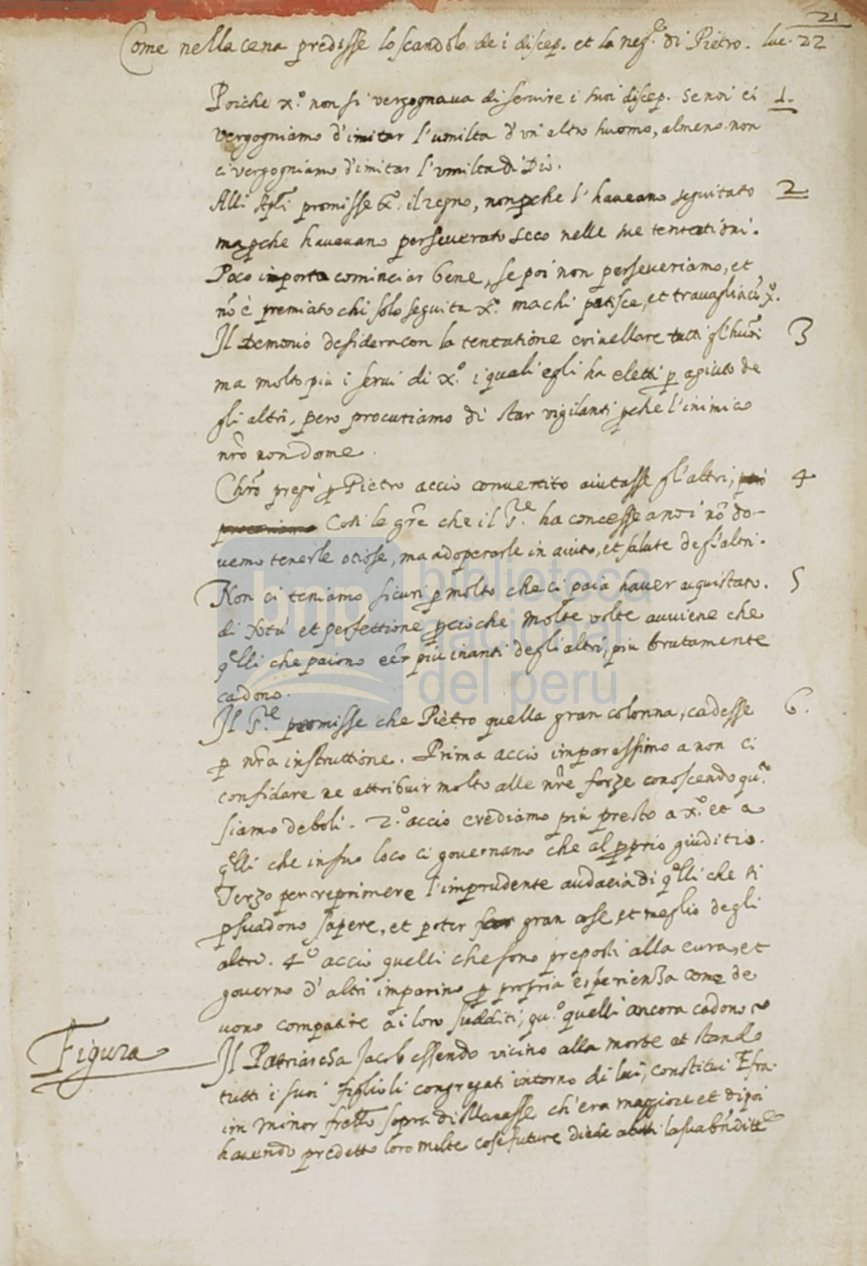 21
Come nella cena predisse lo scandolo de i discep. et la neg.e di Pietro. luc. 22
Poiche x.o non si vergognaua di seruire i suoi discep. se noi ci 1.
vergogniamo d'imitar l'umilta d'un altro huomo, almeno non
ci vergogniamo d'imitar l'umilta di Dio.
Alli Apli promisse il regno, non pche l'haueano seguitato 2
ma pche haueuano perseuerato seco nelle sue tentationi.
Poco importa cominciar bene, se poi non perseueriamo, et
nō è premiato chi solo seguita x.o ma chi patisce, et trauaglia
Il Demonio desidera con la tentatione criuellare tutti gl'huōi 3
ma molto piu i serui di x.o i quali egli ha eletti p agiuto de
gli altri, pero procuriamo di star vigilanti pche l'inimico
nrō non dorme.
Chrō pregò p Pietro accio conuertito aiutasse gl'altri, 4
Cosi le grē che il S.re ha concesse a noi nō do-
uemo tenerle otiose, ma adoperarle in aiuto, et salute degl'altri.
Non ci teniamo sicuri p molto che ci paia hauer aquistato. 5
di virtù et perfettione pcioche molte volte auuiene che
qlli che paiono eēr piu inanti degli altri, piu brutamente
cadono.
Il S.re promisse che Pietro quella gran colonna, cadesse 6.
p nrā instruttione. Prima accio imparassimo a non ci
confidare ne attribuir molto alle nrē forze conoscendo qu.to
siamo deboli. 2.o accio crediamo piu presto a x.o et a
qlli che in suo loco ci gouernano che al pprio giuditio.
Terzo per reprimere l'imprudente audacia di qlli che si
psuadono sapere, et poter far gran cose et meglio degli
altri. 4.o accio quelli che sono preposti alla cura, et
gouerno d'altri imparino p propria esperienza come de
uono compatire a i loro sudditi, qu.o quelli ancora cadono
Figura Il Patriarcha Jacob essendo vicino alla morte et stando
tutti i suoi figlioli congregati intorno di lui, constitui Efra-
im minor frello sopra di Manasse ch'era maggiore et dipoi
hauendo predetto loro molte cose future diede a tutti la sua bñdittē
biblioteca
nacional
del perú